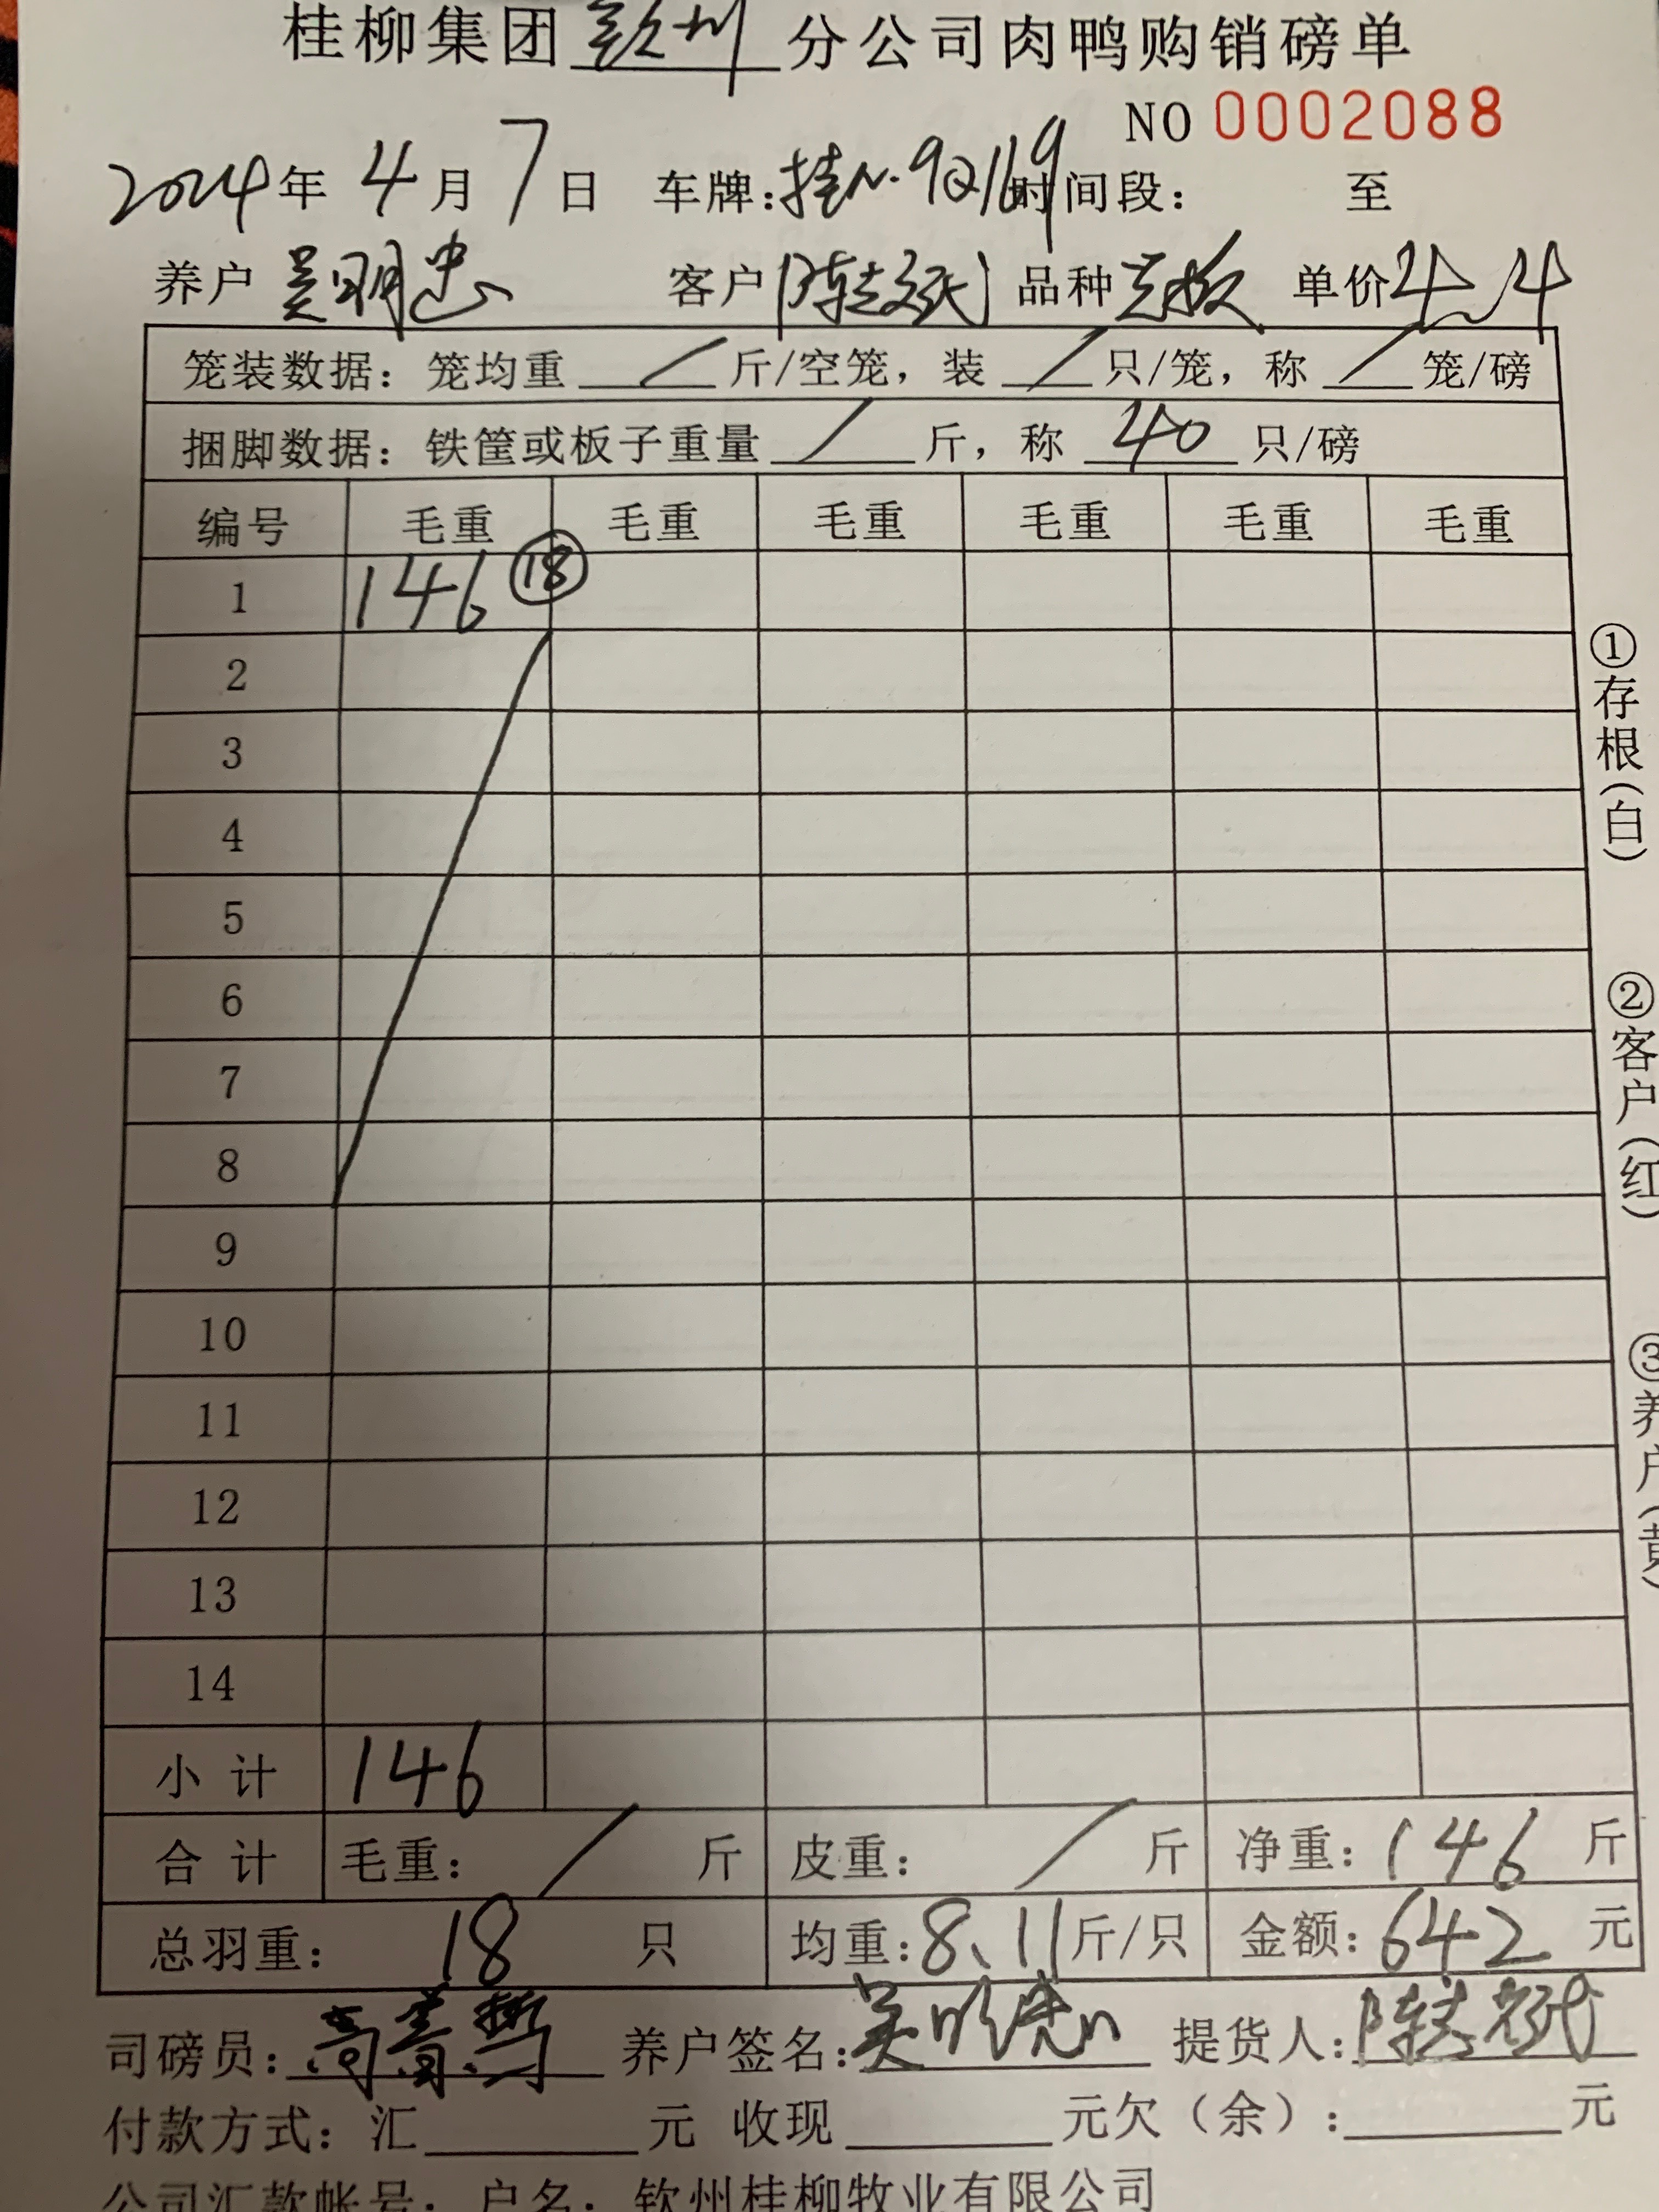 桂柳集团钦州分公司肉鸭购销磅单
NO 0002088
2024年 4月 7日 车牌:桂N·9Q169时间段: 至
养户 吴明忠 客户 陈 品种 单价 4.4
笼装数据: 笼均重 / 斤/空笼, 装 / 只/笼, 称 / 笼/磅
捆脚数据: 铁筐或板子重量 / 斤, 称 40 只/磅
编号 毛重 毛重 毛重 毛重 毛重 毛重
1 146 ⑱
2
3
4
5
6
7
8
9
10
11
12
13
14
小计 146
合计 毛重: / 斤 皮重: / 斤 净重: 146 斤
总羽重: 18 只 均重: 8.11 斤/只 金额: 642 元
司磅员: 高 养户签名: 吴明忠 提货人: 陈
付款方式: 汇 元 收现 元欠(余): 元
公司汇款帐号: 户名: 钦州桂柳牧业有限公司
①存根(白)
②客户(红)
③养户(黄)